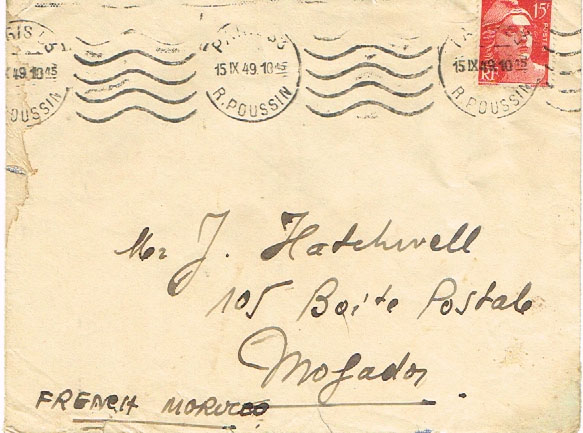 PARIS
15 IX 49. 10 45
R. POUSSIN
15 IX 49. 10 45
R. POUSSIN
15F
RF
Mr J. Hatchwell
105 Boite Postale
Mogador
FRENCH MOROCCO